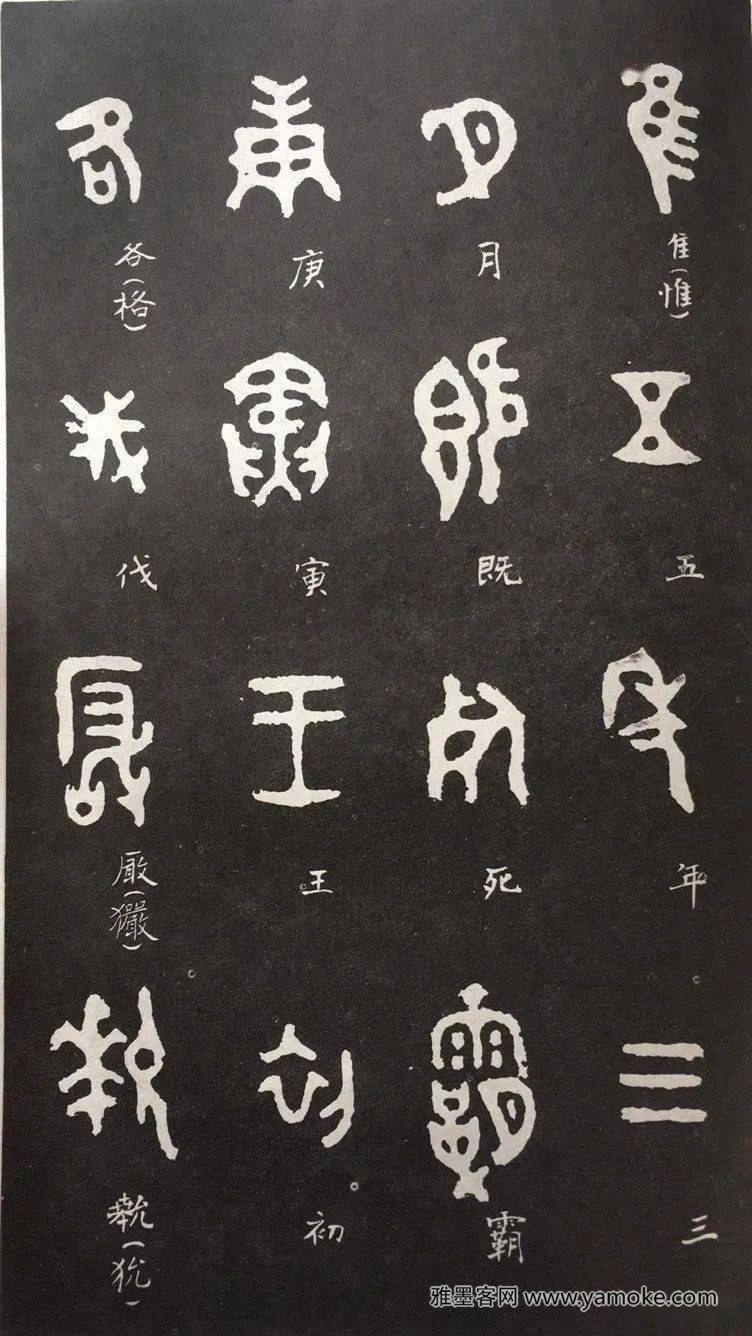 隹(惟) 五 年 三
月 既 死 霸
庚 寅 王 初
各(格) 伐 厰(玁) (狁)
雅墨客网 www.yamoke.com